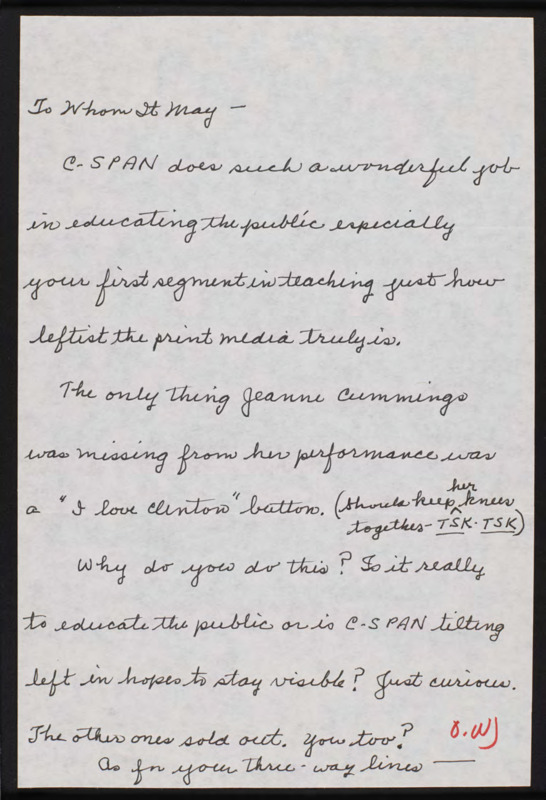 To Whom It May —
C-SPAN does such a wonderful job
in educating the public especially
your first segment in teaching just how
leftist the print media truly is.
The only thing Jeanne Cummings
was missing from her performance was
a "I love Clinton" button. (Should keep her knees
together - TSK. TSK)
Why do you do this? Is it really
to educate the public or is C-SPAN tilting
left in hopes to stay visible? Just curious.
The other ones sold out. You too?
As for your three-way lines —